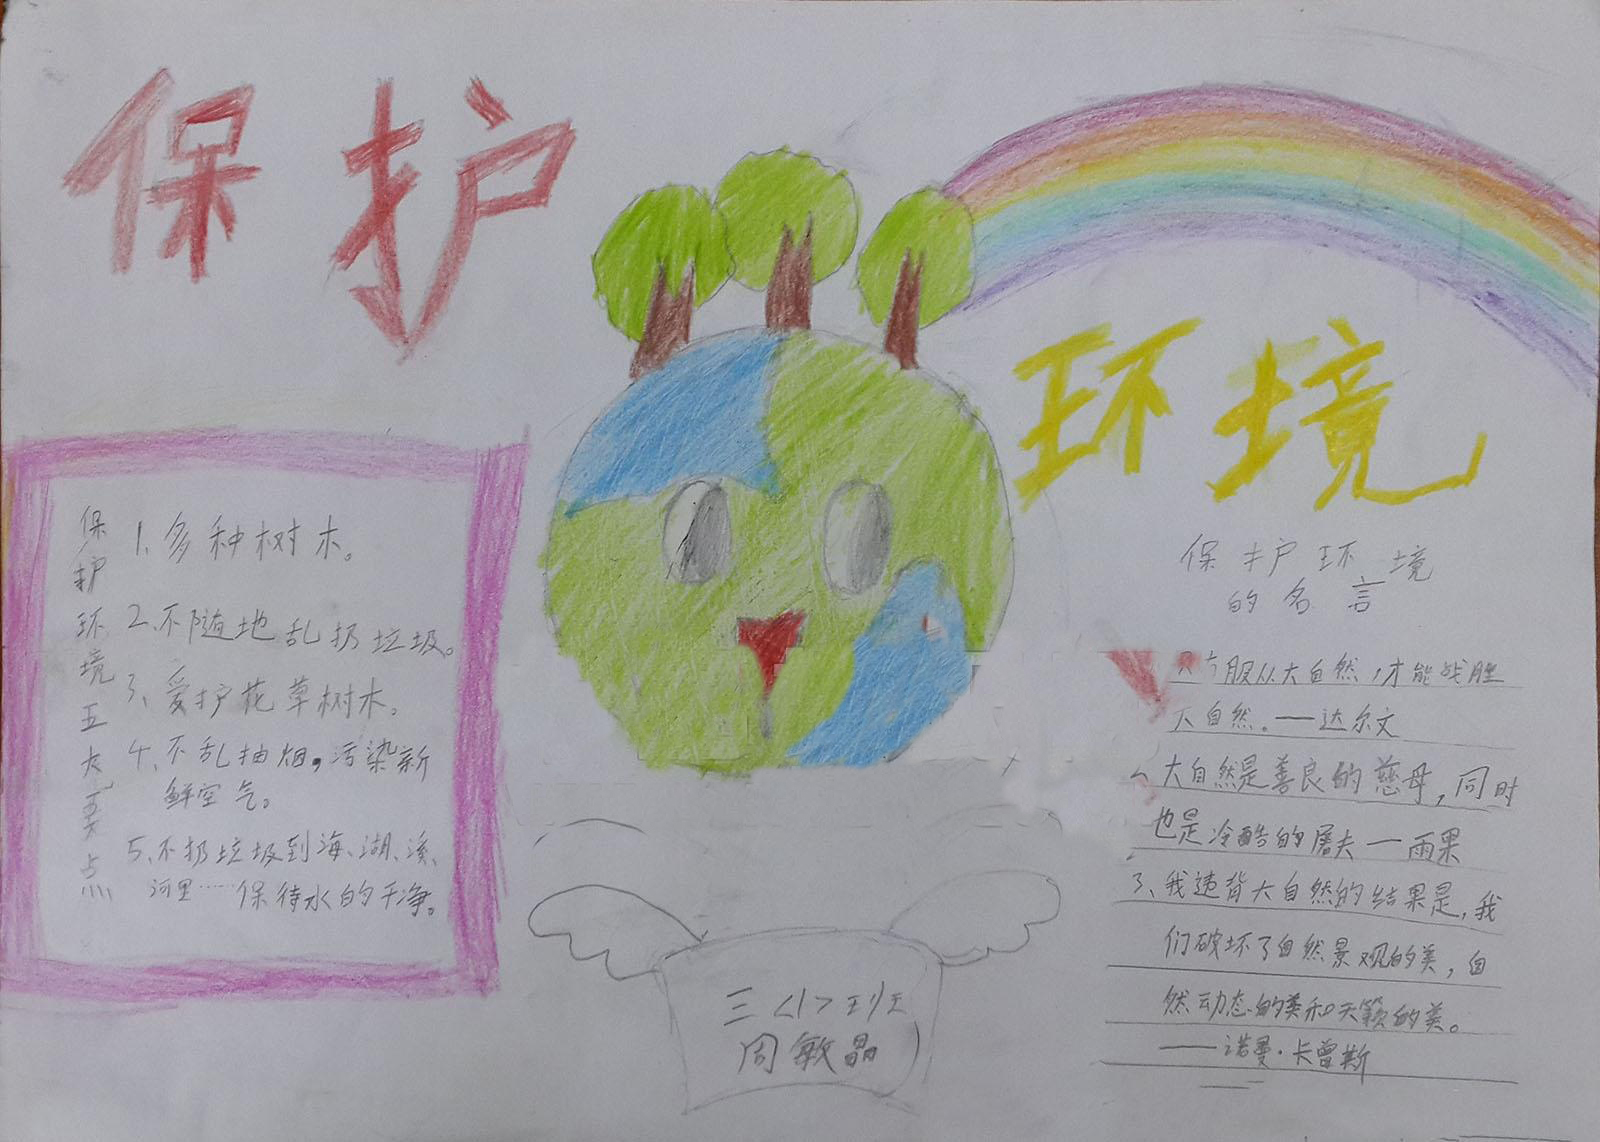 保护
环境
保护环境五大要点
1、多种树木。
2、不随地乱扔垃圾。
3、爱护花草树木。
4、不乱抽烟,污染新
鲜空气。
5、不扔垃圾到海、湖、溪、
河里……保待水的干净。
保护环境
的名言
服从大自然,才能战胜
大自然。——达尔文
大自然是善良的慈母,同时
也是冷酷的屠夫—雨果
3、我违背大自然的结果是,我
们破坏了自然景观的美,自
然动态的美和天籁的美。
——诺曼·卡曾斯
三<1>班
周敏晶